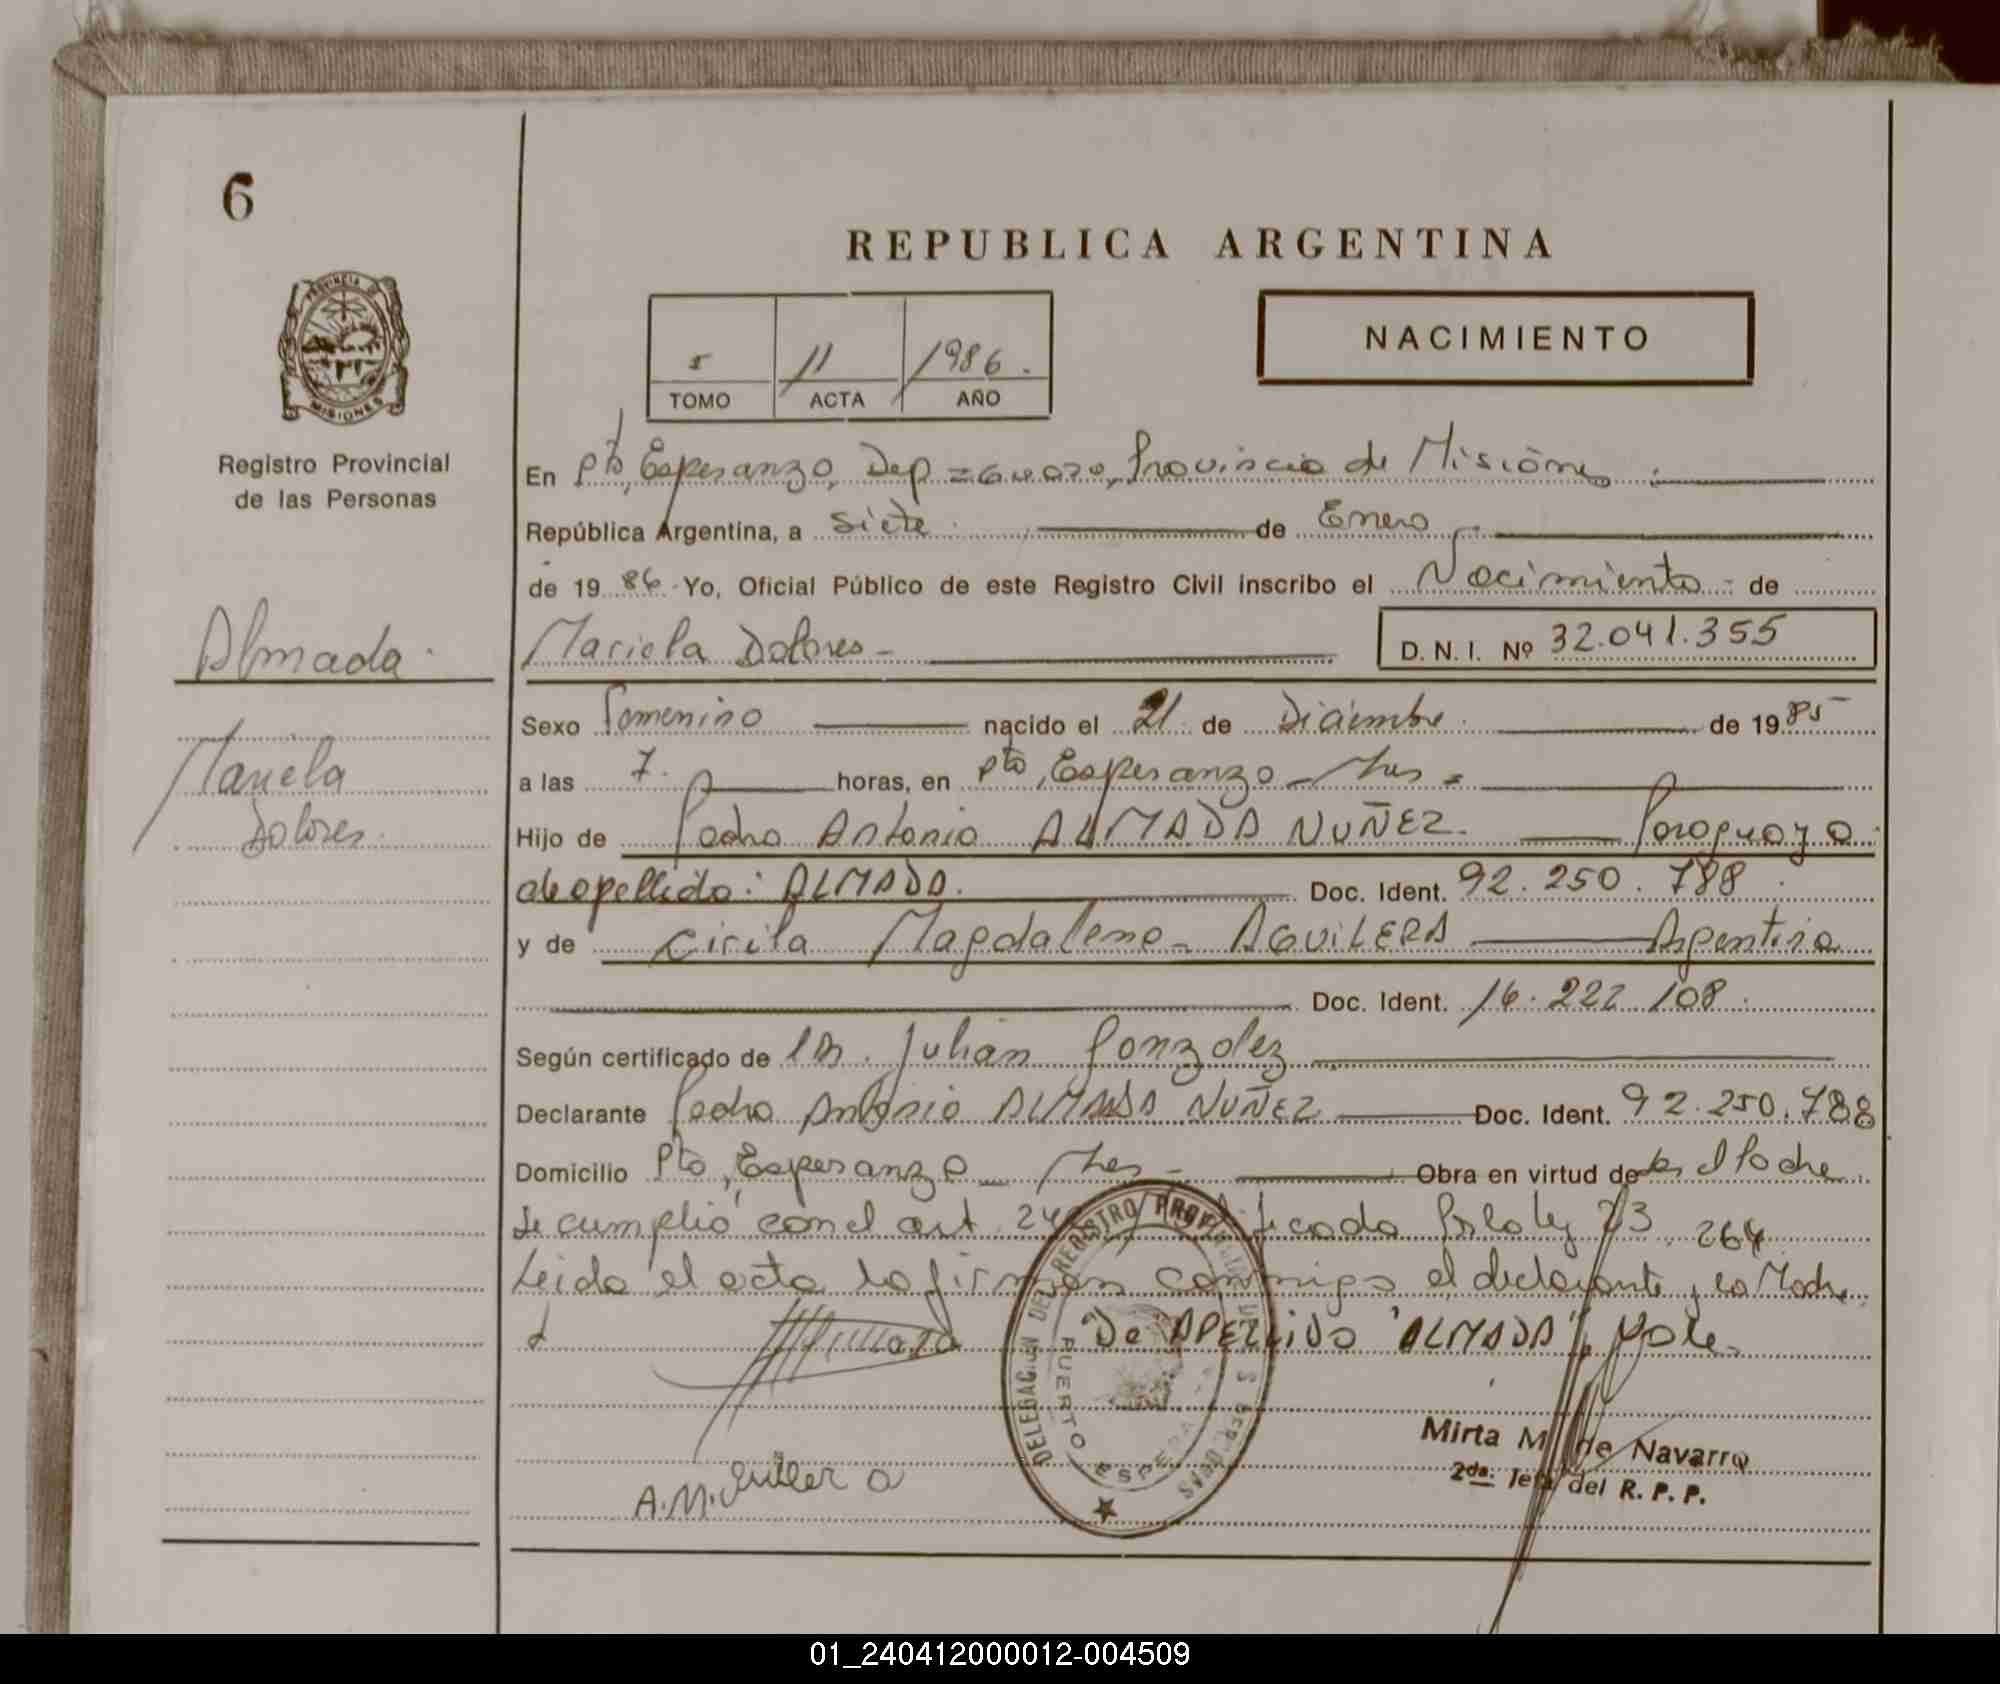 6
REPUBLICA ARGENTINA
NACIMIENTO
I 11 1986.
TOMO ACTA AÑO
PROVINCIA DE
MISIONES
Registro Provincial
de las Personas
Almada
Mariela
Dolores
En Pto, Esperanza, Dep Provincia de Misiones
República Argentina, a siete de Enero
de 1986 Yo, Oficial Público de este Registro Civil inscribo el Nacimiento de
Mariela Dolores - D. N. I. Nº 32.041.355
Sexo Femenino nacido el 21 de Diciembre de 1985
a las 7. horas, en Pto, Esperanza
Hijo de Pedro Antonio ALMADA NUÑEZ. Paraguaya
de apellido: ALMADA. Doc. Ident. 92.250.788
y de Cirila Magdalena AGUILERA Argentina
Doc. Ident. 16.222.108
Según certificado de Julián Gonzalez
Declarante Pedro Antonio ALMADA NUÑEZ Doc. Ident. 92.250.788
Domicilio Pto, Esperanza Obra en virtud de el Padre
Se cumplió con el art. Ley 23.264
Leida el acta la firman conmigo el declarante y la Madre.
"De APELLIDO "ALMADA", Vale.
DELEGACION DEL REGISTRO
PUERTO
Mirta M. de Navarro
2da. del R. P. P.
01_240412000012-004509